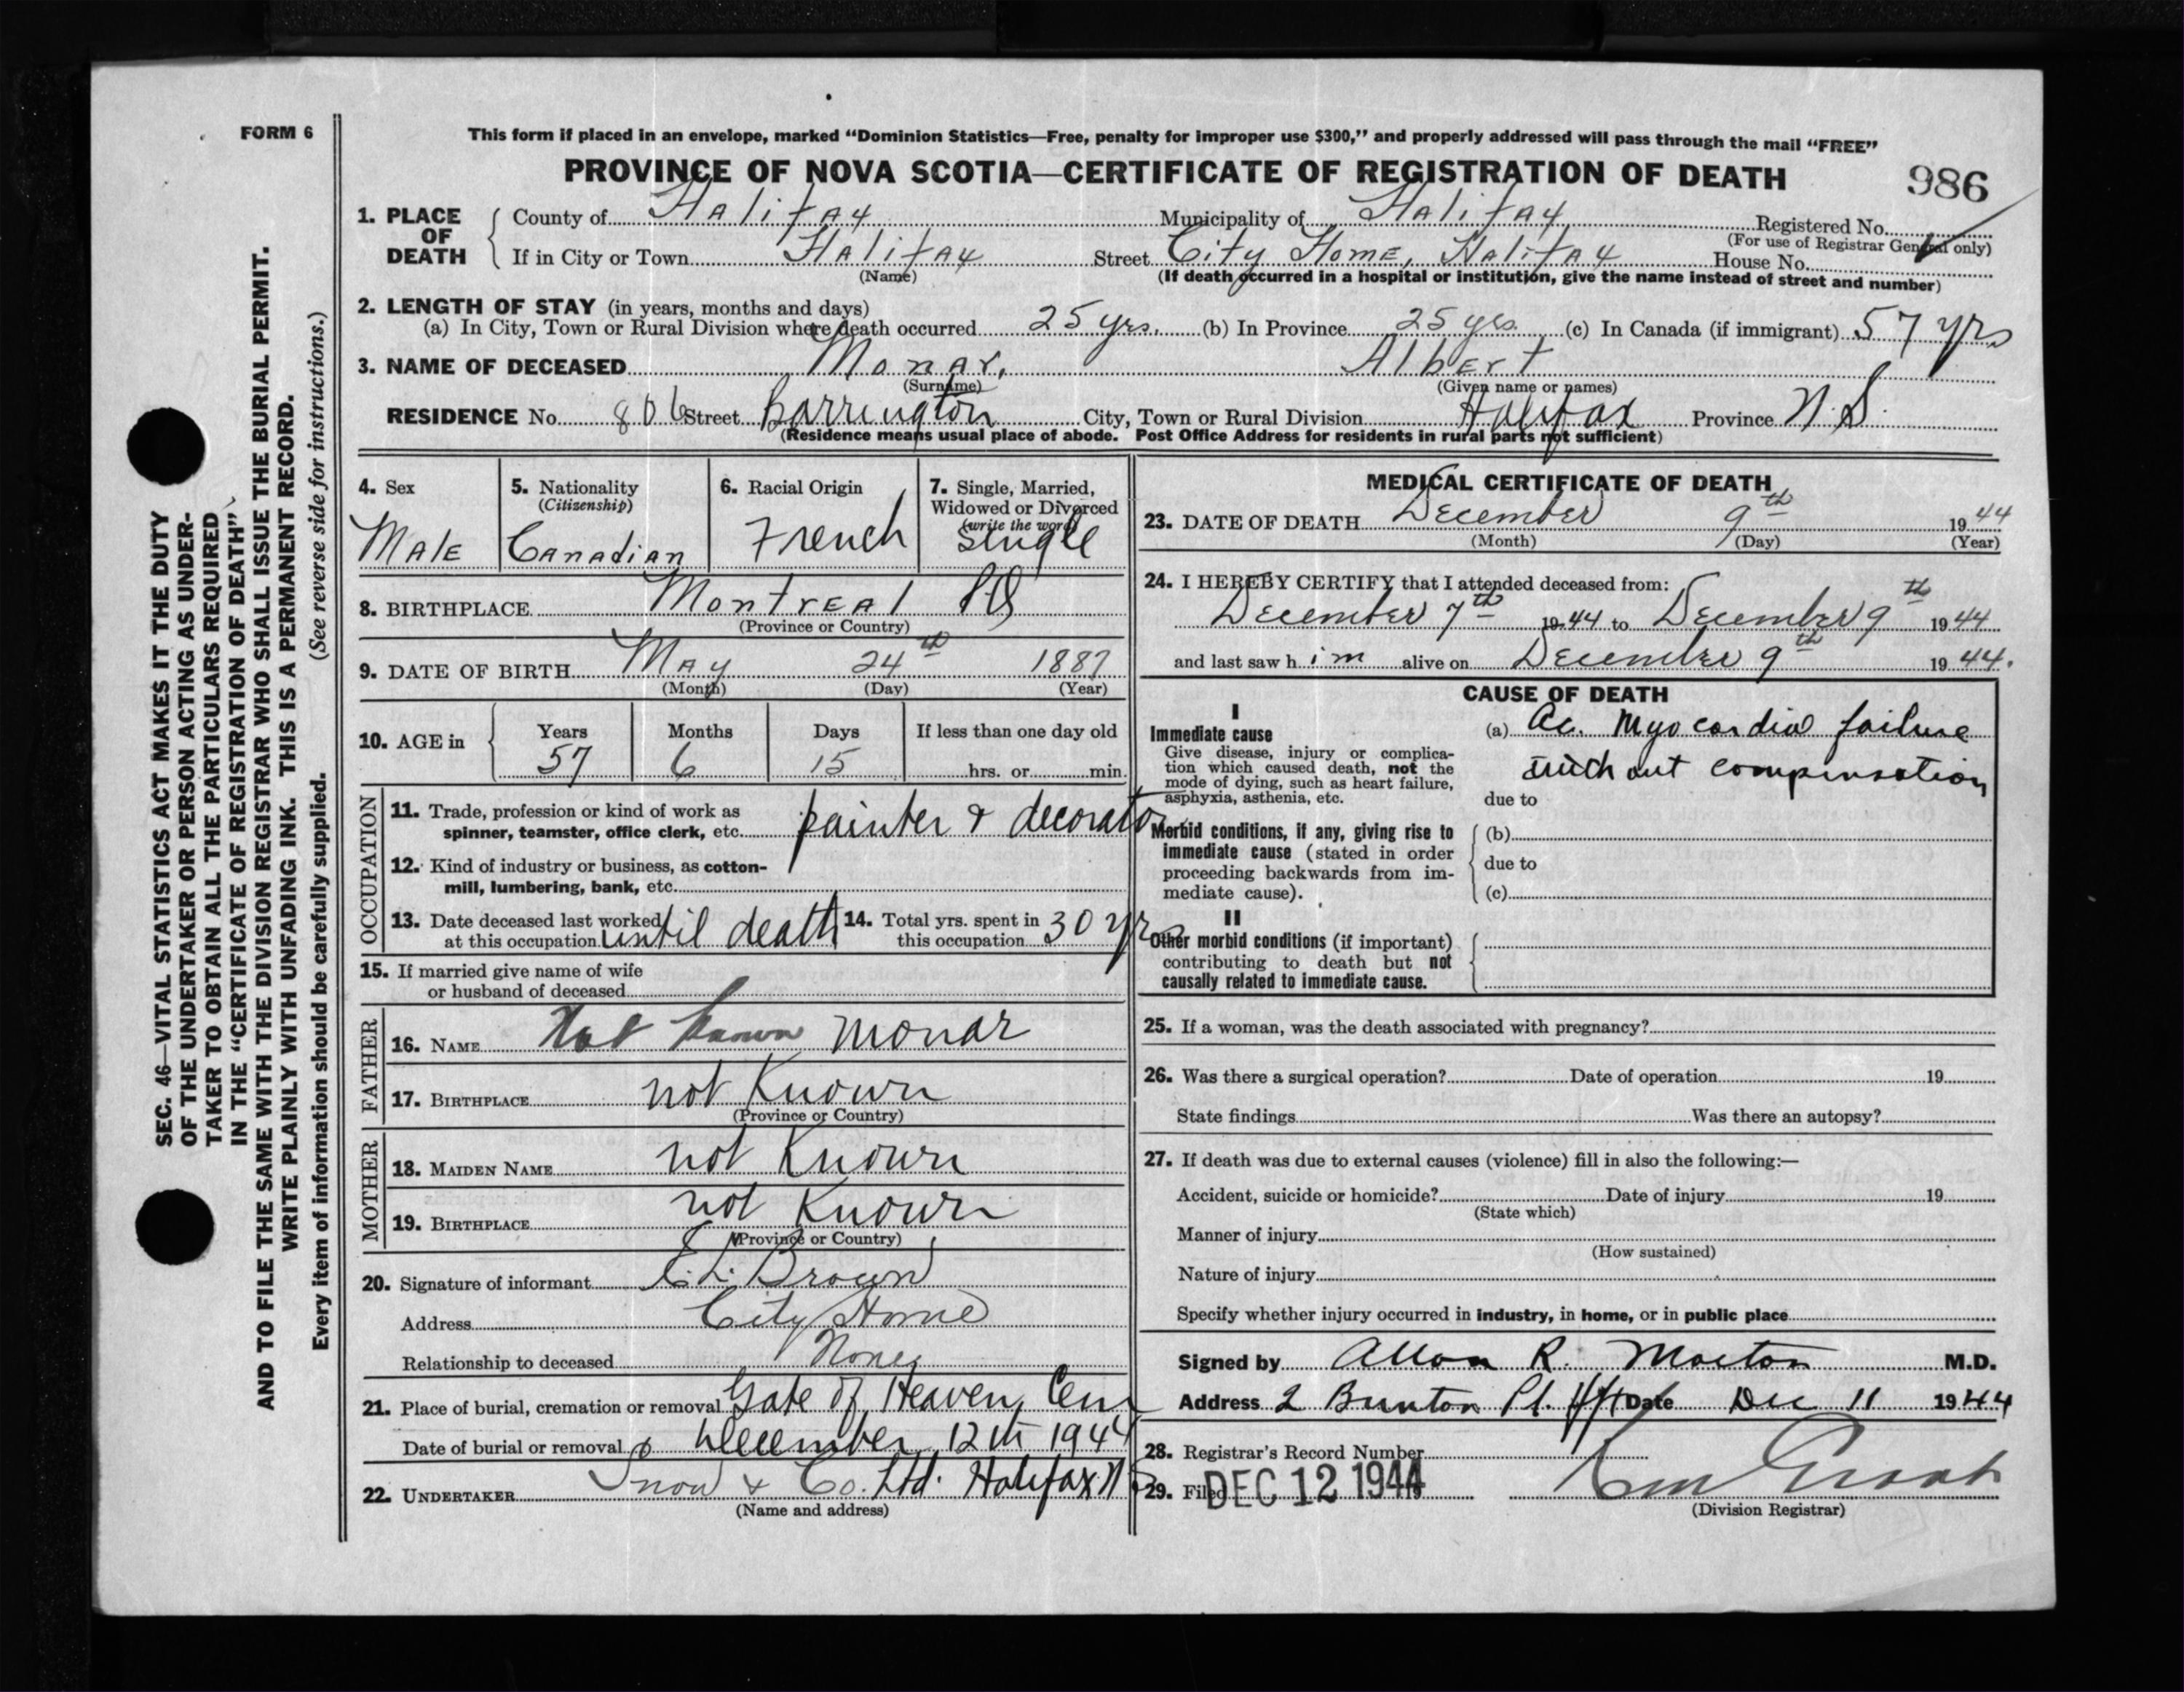 FORM 6
This form if placed in an envelope, marked "Dominion Statistics—Free, penalty for improper use $300," and properly addressed will pass through the mail "FREE"
PROVINCE OF NOVA SCOTIA—CERTIFICATE OF REGISTRATION OF DEATH
986
1. PLACE OF DEATH
County of Halifax Municipality of Halifax Registered No.
(For use of Registrar General only)
If in City or Town Halifax Street City Home, Halifax House No.
(Name) (If death occurred in a hospital or institution, give the name instead of street and number)
2. LENGTH OF STAY (in years, months and days)
(a) In City, Town or Rural Division where death occurred 25 yrs. (b) In Province 25 yrs. (c) In Canada (if immigrant) 57 yrs
3. NAME OF DECEASED Monar, Albert
(Surname) (Given name or names)
RESIDENCE No. 806 Street Barrington City, Town or Rural Division Halifax Province N.S.
(Residence means usual place of abode. Post Office Address for residents in rural parts not sufficient)
4. Sex
Male
5. Nationality
(Citizenship)
Canadian
6. Racial Origin
French
7. Single, Married,
Widowed or Divorced
(write the word)
single
8. BIRTHPLACE Montreal PQ
(Province or Country)
9. DATE OF BIRTH May 24th 1887
(Month) (Day) (Year)
10. AGE in
Years Months Days If less than one day old
57 6 15 hrs. or min.
OCCUPATION
11. Trade, profession or kind of work as
spinner, teamster, office clerk, etc. painter & decorator
12. Kind of industry or business, as cotton-
mill, lumbering, bank, etc.
13. Date deceased last worked
at this occupation until death
14. Total yrs. spent in
this occupation 30 yrs
15. If married give name of wife
or husband of deceased
FATHER
16. NAME Not known Monar
17. BIRTHPLACE not Known
(Province or Country)
MOTHER
18. MAIDEN NAME not Known
19. BIRTHPLACE not Known
(Province or Country)
20. Signature of informant E. L. Brown
Address City Home
Relationship to deceased None
21. Place of burial, cremation or removal Gate of Heaven, Cem
Date of burial or removal December, 12th 1944
22. UNDERTAKER Snow & Co. Ltd. Halifax NS
(Name and address)
MEDICAL CERTIFICATE OF DEATH
23. DATE OF DEATH December 9th 1944
(Month) (Day) (Year)
24. I HEREBY CERTIFY that I attended deceased from:
December 7th 1944 to December 9th 1944
and last saw him alive on December 9th 1944.
CAUSE OF DEATH
I
Immediate cause
Give disease, injury or complica-
tion which caused death, not the
mode of dying, such as heart failure,
asphyxia, asthenia, etc.
(a) Ac. Myocardial failure
without compensation
due to
Morbid conditions, if any, giving rise to
immediate cause (stated in order
proceeding backwards from im-
mediate cause).
(b)
due to
(c)
II
Other morbid conditions (if important)
contributing to death but not
causally related to immediate cause.
25. If a woman, was the death associated with pregnancy?
26. Was there a surgical operation? Date of operation 19
State findings Was there an autopsy?
27. If death was due to external causes (violence) fill in also the following:—
Accident, suicide or homicide? Date of injury 19
(State which)
Manner of injury
(How sustained)
Nature of injury
Specify whether injury occurred in industry, in home, or in public place
Signed by Allan R. Morton M.D.
Address 2 Bunton Pl. Hfx Date Dec 11 1944
28. Registrar's Record Number
29. Filed DEC 12 1944
(Division Registrar)
SEC. 46—VITAL STATISTICS ACT MAKES IT THE DUTY
OF THE UNDERTAKER OR PERSON ACTING AS UNDER-
TAKER TO OBTAIN ALL THE PARTICULARS REQUIRED
IN THE "CERTIFICATE OF REGISTRATION OF DEATH"
AND TO FILE THE SAME WITH THE DIVISION REGISTRAR WHO SHALL ISSUE THE BURIAL PERMIT.
WRITE PLAINLY WITH UNFADING INK. THIS IS A PERMANENT RECORD.
Every item of information should be carefully supplied. (See reverse side for instructions.)